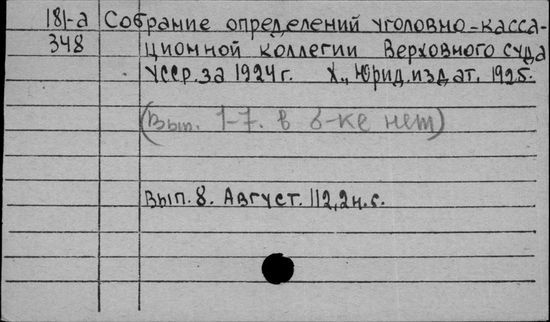 181-а Собрание определений уголовно-касса-
348 ционной коллегии Верховного суда
УССР. за 1924 г. Х., Юрид. издат. 1925.
(Вып. 1-7. в б-ке нет)
Вып. 8. Август. 112, 2 н. с.